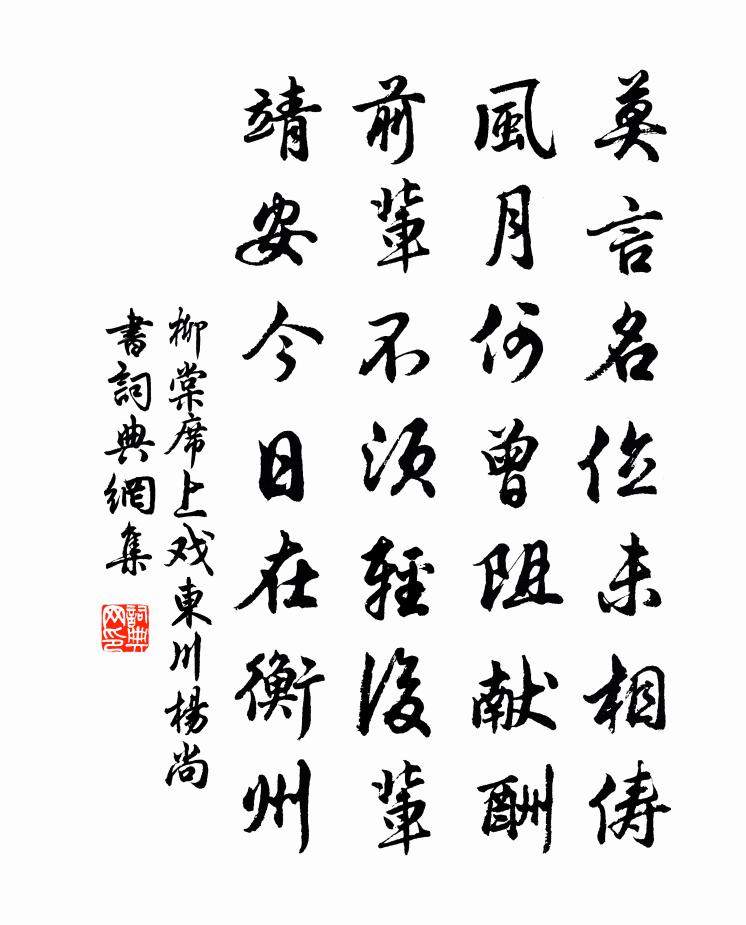 莫言名位未相俦
風月何曾阻献酬
前輩不須輕後輩
靖安今日在衡州
柳棠席上戏東川楊尚
書詞典網集
詞典网印